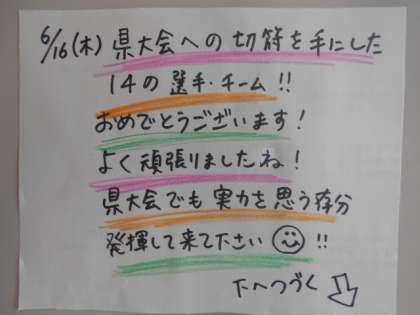 6/16(木)県大会への切符を手にした
14の選手・チーム!!
おめでとうございます!
よく頑張りましたね!
県大会でも実力を思う存分
発揮して来て下さい!!
下へつづく